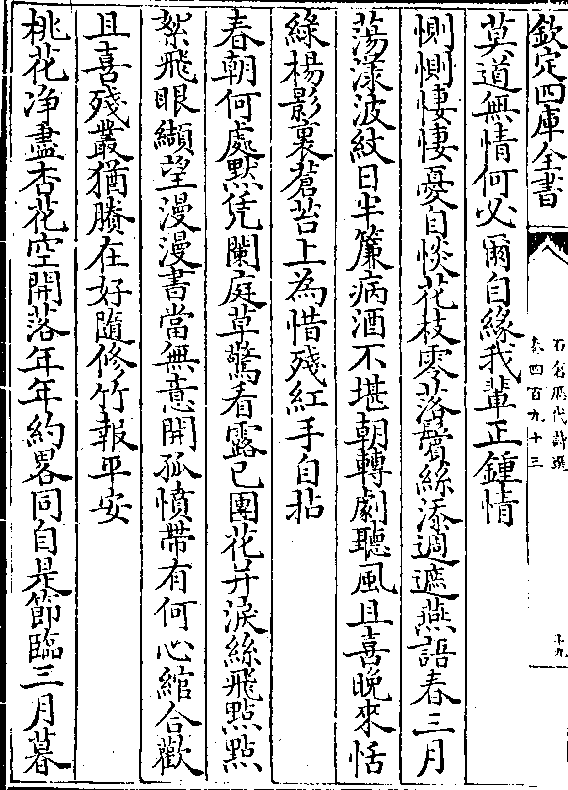 欽定四庫全書
石倉歷代詩選
卷四百九十三
十九
莫道無情何必爾自緣我輩正鍾情
惻惻悽悽憂自惔花枝零落鬢絲添週遮燕語春三月
蕩漾波紋日半簾病酒不堪朝轉劇聽風且喜晚來恬
綠楊影裏蒼苔上為惜殘紅手自拈
春朝何處黙凭闌庭草驚看露已團花并淚絲飛點點
絮飛眼纈望漫漫書當無意開孤憤帶有何心綰合歡
且喜殘叢猶賸在好隨修竹報平安
桃花净盡杏花空開落年年約畧同自是節臨三月暮